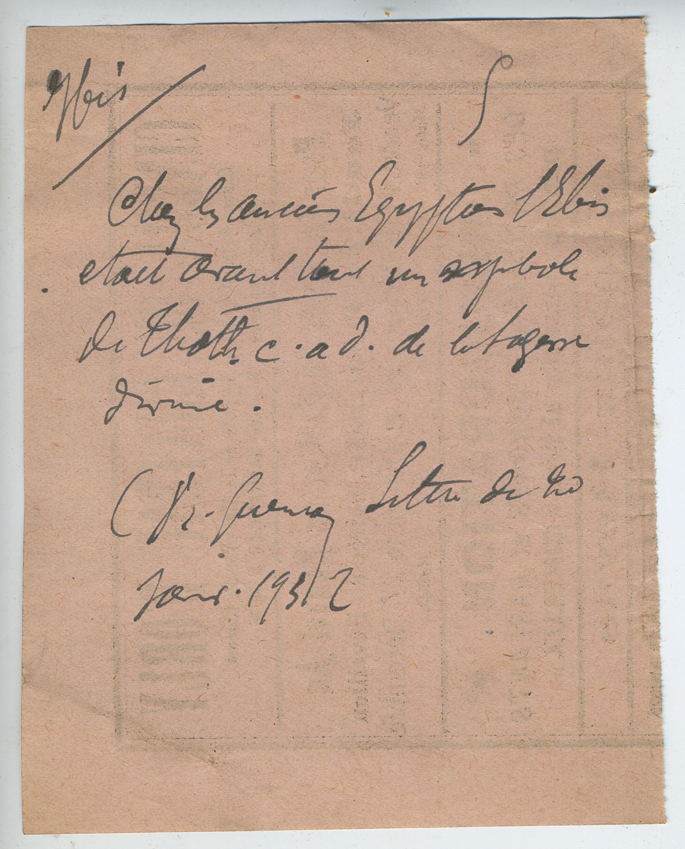 Ibis
Chez les anciens Egyptiens l'Ibis
etait avant tout un symbole
de Thoth c.a d. de la Sagesse
divine.
( R. Guenon Lettre du 20
Janv. 1932